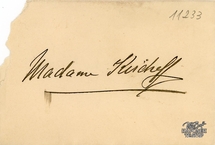 11233
Madame Kischeff